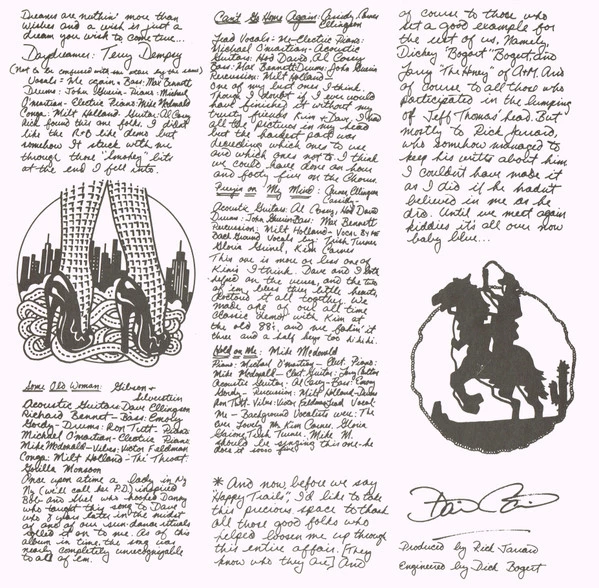 Dreams are nuthin' more than
wishes and a wish is just a
dream you wish to come true...
Daydreamer: Terry Dempsey
(Not to be confused with the wean by the same)
Vocals: Me again & Bass: Max Bennett
Drums: John Guerin - Piano: Michael
O'martian - Electric Piano: Mike McDonald
Conga: Milt Holland. Guitar: Al Casey
Rick found this one folks. I didn't
like the R&B like demo but
somehow it stuck with me
through those "smokey" lits
at the end I fell into.
Some Old Woman: Gibson &
Silverstein
Acoustic Guitars: Dave Ellingson
Richard Bennet - Bass: Emory
Gordy - Drums: Ron Tutt - Piano:
Michael O'martian - Electric Piano:
Mike McDonald - Vibes: Victor Feldman
Conga: Milt Holland - The Throat:
Gorilla Monsoon
Once upon a time a lady in N.Y.
N.Y. (will call her P.D.) inspired
Bob and Shel who hooked Danny
who taught this song to Dave
who 3 years later in the midst
of one of our sun-dance rituals
rolled it on to me. As of this
album in time, the song was
nearly completely unrecognizable
to all of em.
Can't Go Home Again: Cassidy, Carnes
Ellingson
Lead Vocals - Me - Electric Piano:
Michael O'martian - Acoustic
Guitars: Hod David, Al Casey
Bass: Max Bennett - Drums: John Guerin
Percussion: Milt Holland -
One of my best ones I think.
Though I doubt if I ever would
have finished it without my
trusty friends Kim & Dave, I had
all the pictures in my head
but the hardest part was
depending which ones to use
and which ones not to. I think
we could have done an hour
and forty five on the Chorus.
Preyin on My Mind: Carnes Ellingson
Cassidy
Acoustic Guitars: Al Casey, Hod David
Drums: John Guerin Bass: Max Bennett
Percussion: Milt Holland - Vocal By Me
Back Ground Vocals by: Trish Turner
Gloria Grinel, Kim Carnes
This one is more or less one of
Kim's I think. Dave and I both
helped on the verses, and the two
of em, bless they little hearts,
doctored it all together. We
made one of our all time
classic demos with Kim at
the old 88's, and me fakin' it
three and a half keys too hi hi hi.
Hold on Me: Mike Mcdonald
Piano: Michael O'martian - Elect. Piano:
Mike Mcdonald - Elect. Guitar: Larry Carlton
Acoustic Guitar: Al Casey - Bass: Emory
Gordy - Percussion: Milt Holland - Drums:
Ron Tutt - Vibes: Victor Feldman Lead Vocal:
Me - Background Vocalists were: The
ever lovely Ms. Kim Carnes, Gloria
Grinel, Trish Turner. Mike M.
should be singing this one - he
does it sooo fine!
* And now before we say
"Happy Trails", I'd like to take
this precious space to thank
all those good folks who
helped loosen me up through
this entire affair. [They
know who they are] And
of course to those who
set a good example for
the rest of us, Namely,
Dickey "Bogart" Bogert, and
Larry "The Honey" of A&M. And
of course to all those who
participated in the lumping
of Jeff Thomas' head. But
mostly to Rick Jarrard,
who somehow managed to
keep his witts about him.
I couldn't have made it
as I did if he hadn't
believed in me as he
did. Until we meet again
kiddies it's all over now
baby blue...
Produced by Rick Jarrard
Engineered by Dick Bogert